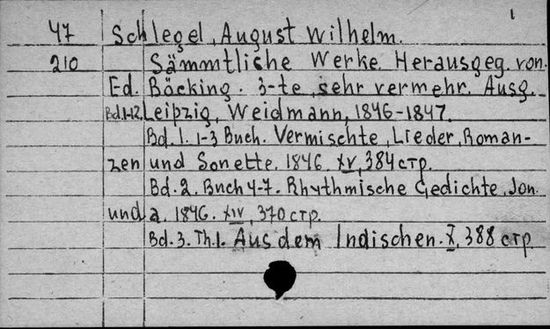 1
47 Schlegel, August Wilhelm.
210 Sämmtliche Werke. Herausgeg. von
Ed. Böcking. 3-te, sehr vermehr. Ausg.
Bd.1-12. Leipzig, Weidmann, 1846-1847.
Bd. 1. 1-3 Buch. Vermischte, Lieder, Roman-
zen und Sonette. 1846. XV, 384 стр.
Bd. 2. Buch 4-7. Rhythmische Gedichte, Jon.
und a. 1846. XIV, 370 стр.
Bd. 3. Th.1. Aus dem Indischen. X, 388 стр